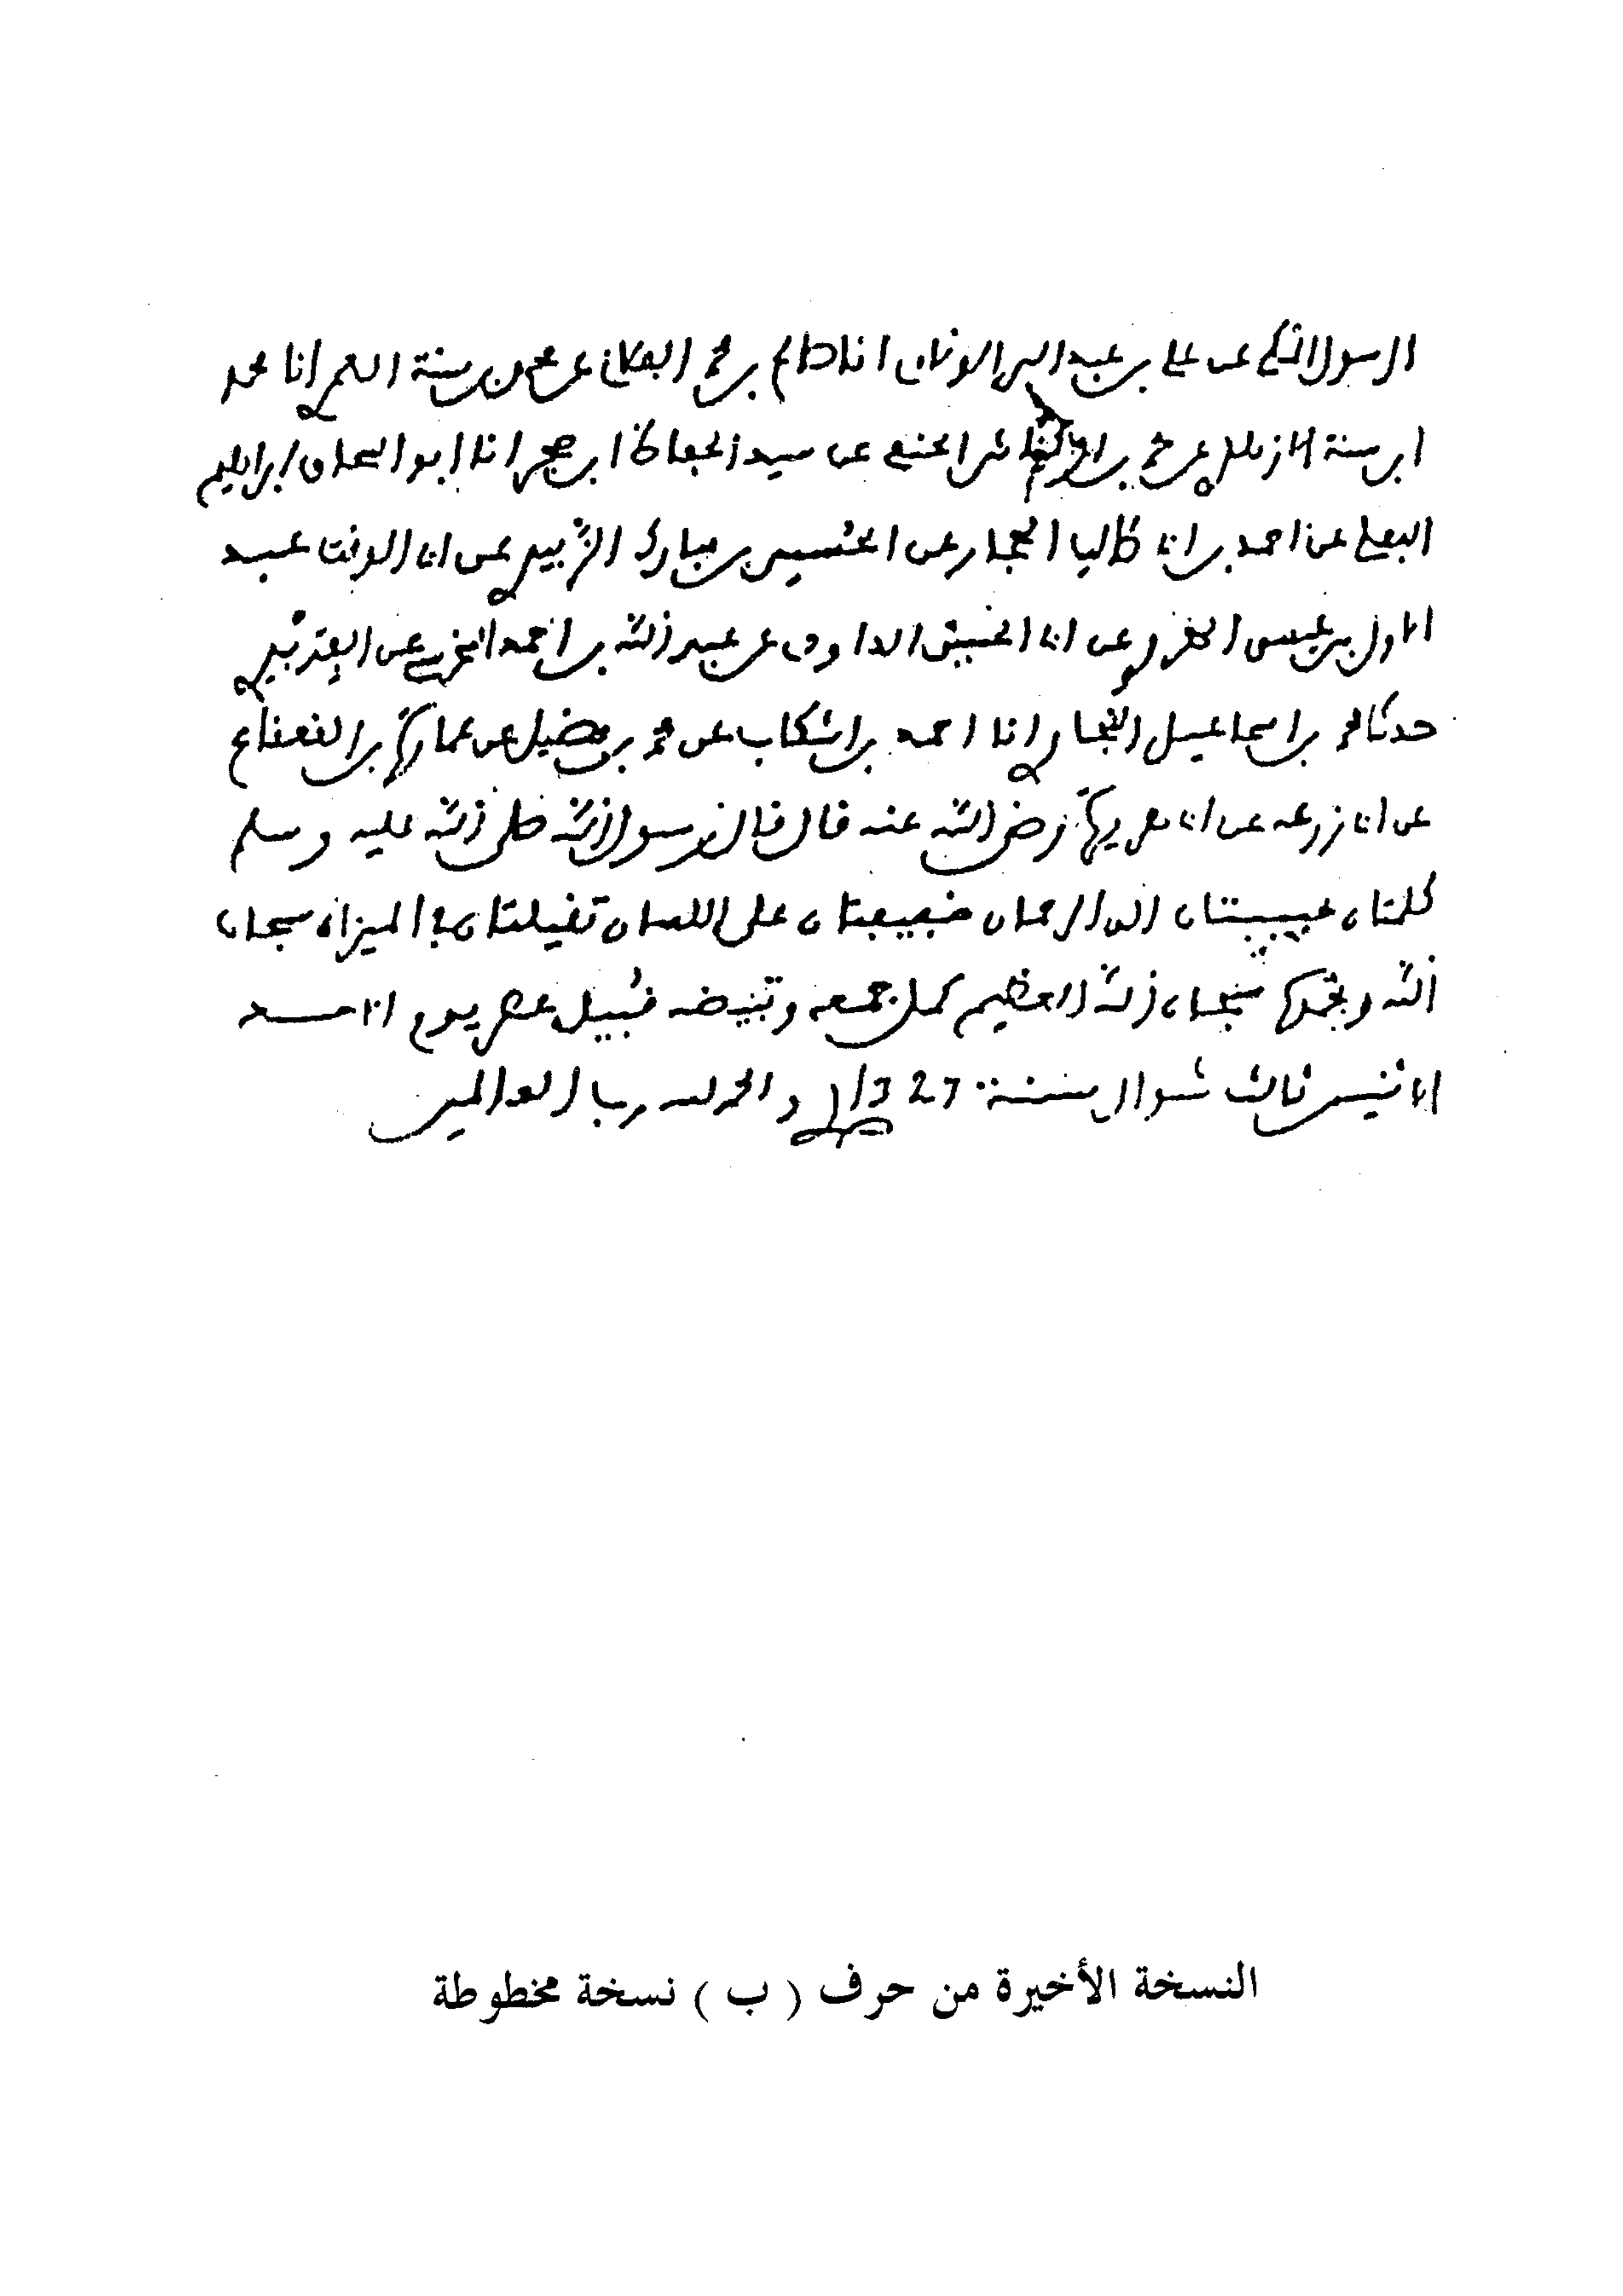 الرسول المكي عن علي بن عبد البر الونائي انا صالح بن محمد الفلاني عن محمد بن سنة العمري انا محمد
ابن سنة الازهري عن محمد بن الحنفي عن سيد الحفاظ ابن حجر انا ابو اسحاق ابراهيم
البعلي عن احمد بن ابي طالب الحجار عن الحسين بن مبارك الزبيدي عن ابي الوقت عبد
الاول بن عيسى الهروي عن ابي الحسن الداودي عن عبد الله بن احمد السرخسي عن الفربري
حدثنا محمد بن اسماعيل البخاري انا احمد بن اشكاب عن محمد بن فضيل عن عمارة بن القعقاع
عن ابي زرعة عن ابي هريرة رضي الله عنه قال قال رسول الله صلى الله عليه وسلم
كلمتان حبيبتان الى الرحمان خفيفتان على اللسان ثقيلتان في الميزان سبحان
الله وبحمده سبحان الله العظيم كمل جمعه وتبييضه قبيل عصر يوم
الاثنين ثالث شوال سنة 1327 والحمد لله رب العالمين
النسخة الأخيرة من حرف ( ب ) نسخة مخطوطة